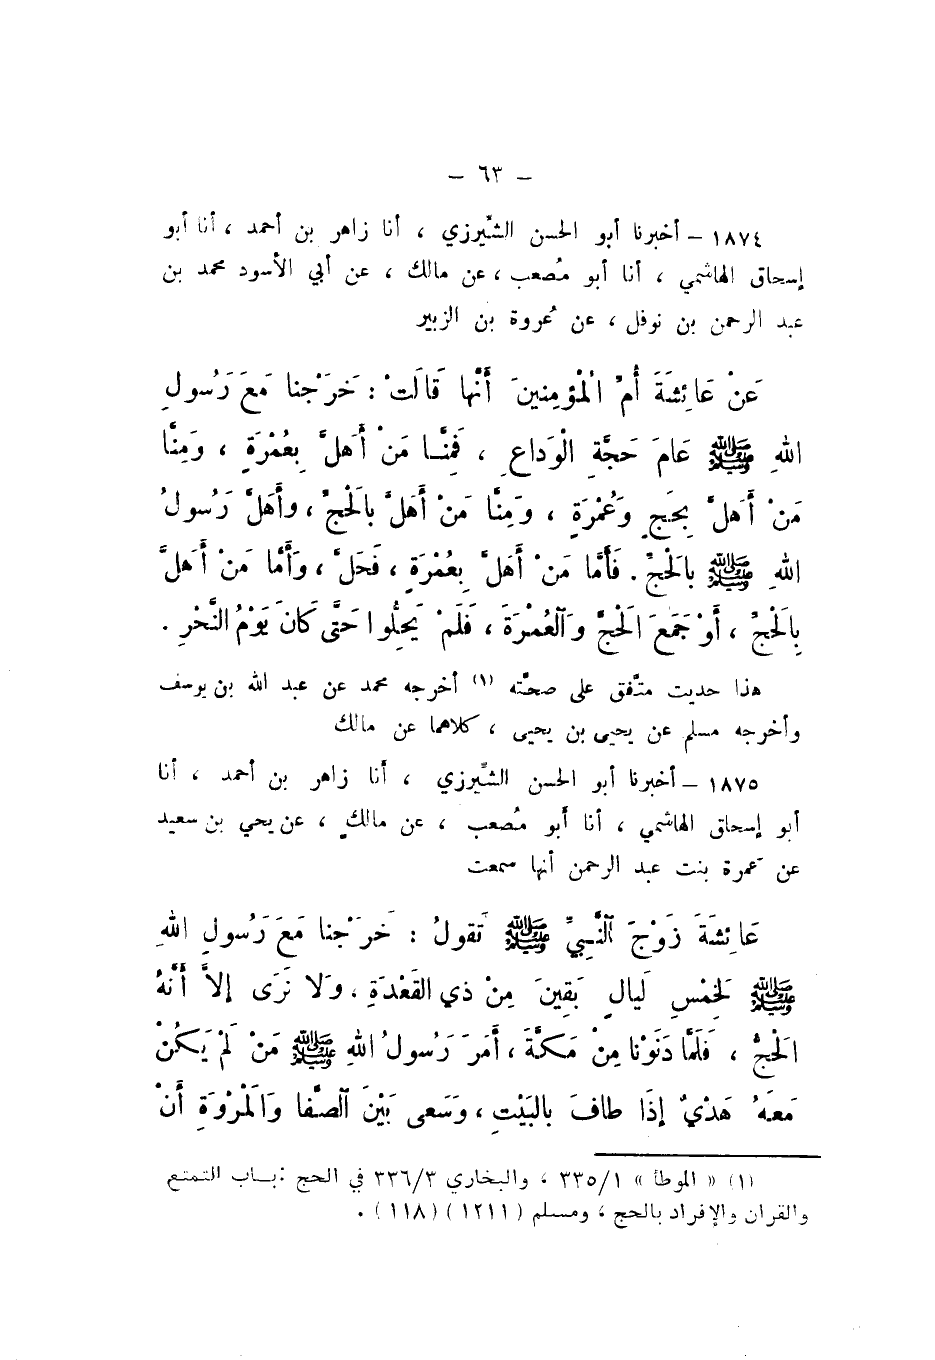 – ٦٣ –
١٨٧٤ – أخبرنا أبو الحسن الشِّيرزي ، أنا زاهر بن أحمد ، أنا أبو
إسحاق الهاشمي ، أنا أبو مُصعب ، عن مالك ، عن أبي الأسود محمد بن
عبد الرحمن بن نوفل ، عن عُروة بن الزبير
عَنْ عَائِشَةَ أُمِّ الْمُؤمِنِينَ أَنَّها قَالَتْ : خَرَجْنا مَعَ رَسُولِ
اللهِ ﷺ عَامَ حَجَّةِ الْوَدَاعِ ، فَمِنَّا مَنْ أَهَلَّ بِعُمْرَةٍ ، وَمِنَّا
مَنْ أَهَلَّ بِحَجٍ وَعُمْرَةٍ ، وَمِنَّا مَنْ أَهَلَّ بالْحَجِّ ، وأَهَلَّ رَسُولُ
اللهِ ﷺ بالْحَجِّ . فَأَمَّا مَنْ أَهَلَّ بِعُمْرَةٍ ، فَحَلَّ ، وَأَمَّا مَنْ أَهَلَّ
بِالْحَجِّ ، أَوْ جَمَعَ الْحَجَّ وَالْعُمْرَةَ ، فَلَمْ يَحِلُّوا حَتَّى كَانَ يَوْمُ النَّحْرِ .
هذا حديث متَّفق على صحَّته (١) أخرجه محمد عن عبد الله بن يوسف
وأخرجه مسلم عن يحيى بن يحيى ، كلاهما عن مالك
١٨٧٥ – أخبرنا أبو الحسن الشِّيرزي ، أنا زاهر بن أحمد ، أنا
أبو إسحاق الهاشمي ، أنا أبو مُصعب ، عن مالكٍ ، عن يحي بن سعيد
عن عَمرة بنت عبد الرحمن أنها سمعت
عَائِشَةَ زَوْجَ النَّبِيِّ ﷺ تَقولُ : خَرَجْنا مَعَ رَسُولِ اللهِ
ﷺ لَخِمْسِ لَيالٍ بَقِينَ مِنْ ذي القَعْدَةِ ، وَلا نَرَى إلاَّ أَنَّهُ
الْحَجُّ ، فَلَمَّا دَنَوْنا مِنْ مَكَّةَ ، أَمَرَ رَسُولُ اللهِ ﷺ مَنْ لَمْ يَكُنْ
مَعَهُ هَدْيٌ إذَا طافَ بالبَيْتِ ، وَسَعى بَيْنَ الصَّفا وَالْمَرْوَةِ أَنْ
(١) « الموطأ » ٣٣٥/١ ، والبخاري ٣٣٦/٣ في الحج : باب التمتع
والقران والإفراد بالحج ، ومسلم ( ١٢١١ ) ( ١١٨ ) .